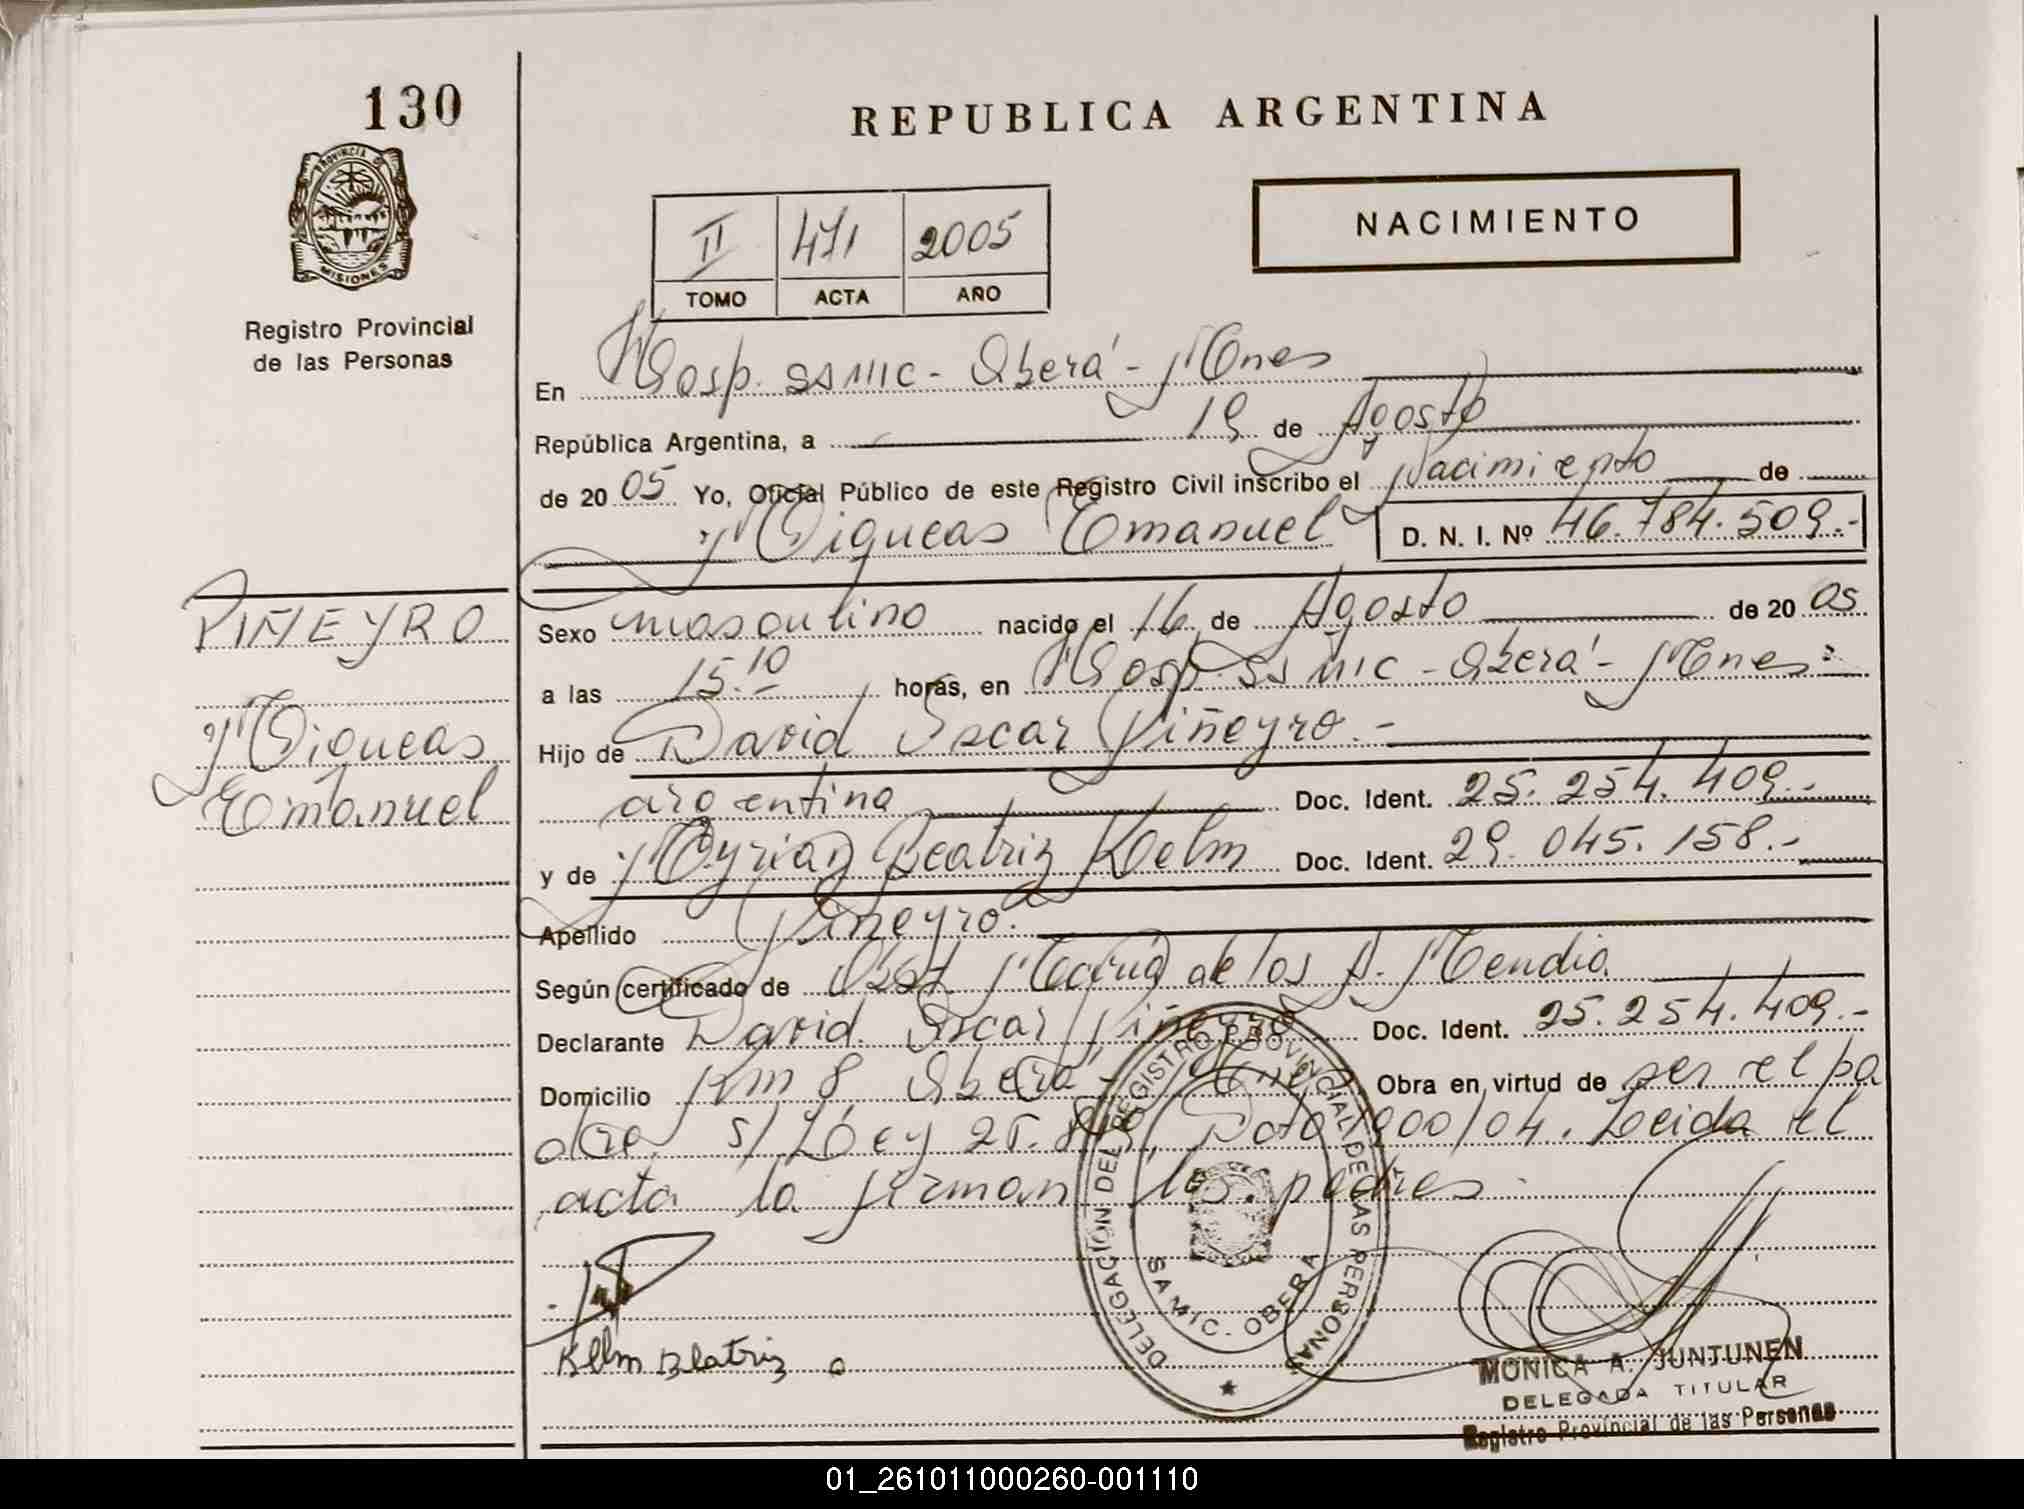 130
PROVINCIA D
MISIONES
Registro Provincial
de las Personas
REPUBLICA ARGENTINA
II 471 2005
TOMO ACTA AÑO
NACIMIENTO
En Hosp. SSMIC - Oberá - Mnes
República Argentina, a 19 de Agosto
de 2005 Yo, Oficial Público de este Registro Civil inscribo el Nacimiento de
Miqueas Emanuel D. N. I. Nº 46.784.509.-
PIÑEYRO
Miqueas
Emanuel
Sexo masculino nacido el 16 de Agosto de 2005
a las 15.10 horas, en Hosp. SSMIC - Oberá - Mnes.
Hijo de David Oscar Piñeyro.-
argentina Doc. Ident. 25.254.409.-
y de Myrian Beatriz Kelm Doc. Ident. 29.045.158.-
Apellido Piñeyro.
Según certificado de Obst. María de los A. Mendia
Declarante David Oscar Piñeyro Doc. Ident. 25.254.409.-
Domicilio Km 8 Oberá - Mnes Obra en virtud de ser el pa
dre s/ Ley Dto 1900/04. Leida el
acta la firman los padres.
Kelm Beatriz
DELEGACION DEL REGISTRO PROVINCIAL DE LAS PERSONAS
SAMIC - OBERA
MONICA A. JUNTUNEN
DELEGADA TITULAR
Registro Provincial de las Personas
01_261011000260-001110